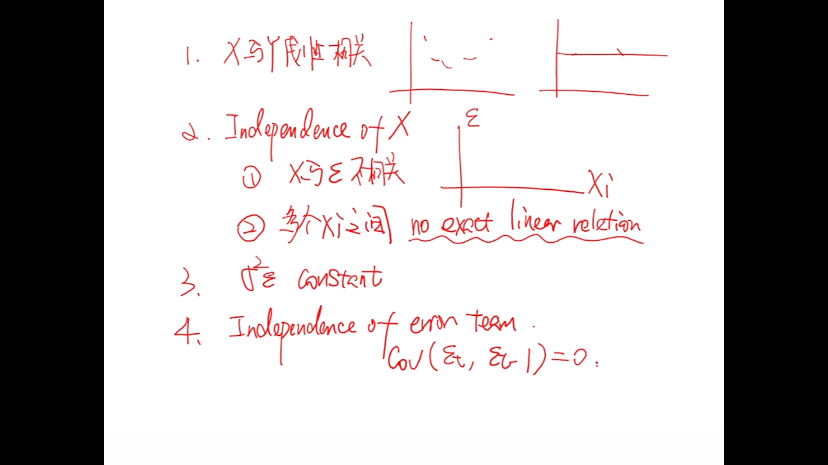 1. X与Y线性相关
2. Independence of X
ε
① X与ε不相关
Xi
② 多个Xi之间 no exact linear relation
3. σ²ε constant
4. Independence of error team.
Cov(εt, εt-1)=0.